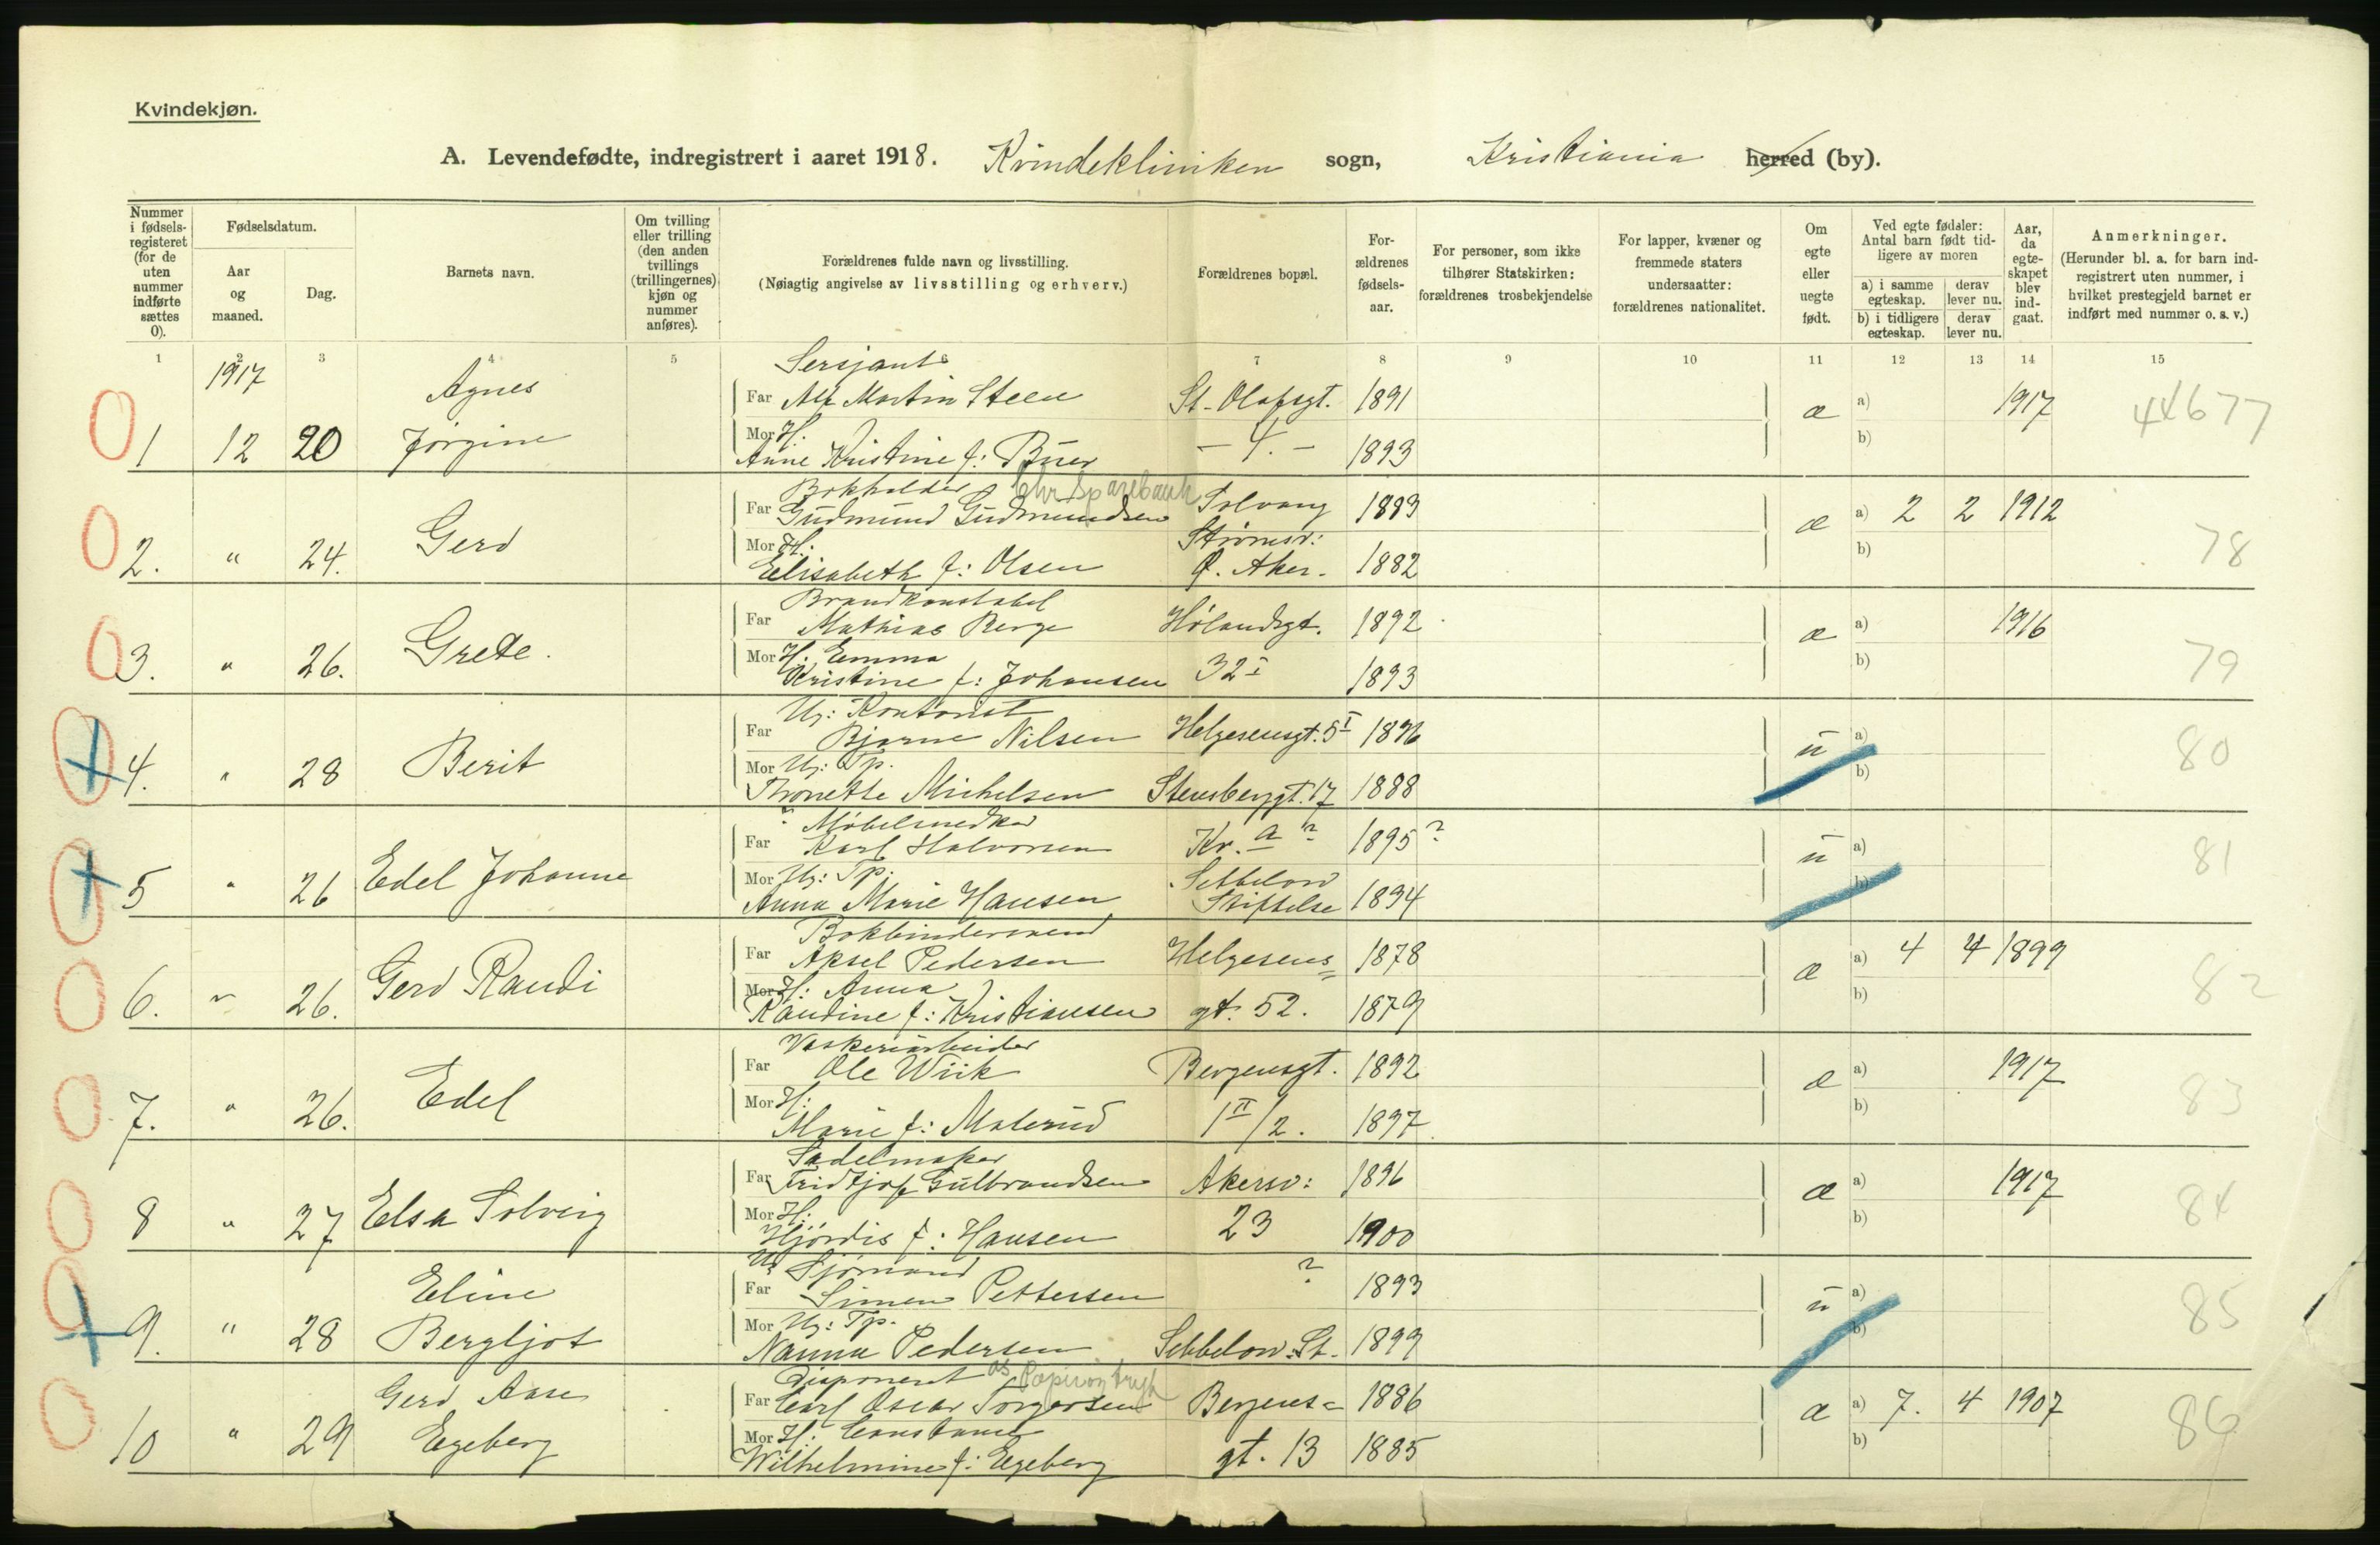 Kvindekjøn.
A. Levendefødte, indregistrert i aaret 1918. Kvindekliniken sogn, Kristiania herred (by).
Nummer i fødsels-registeret (for de uten nummer indførte sættes 0).
Fødselsdatum.
Aar og maaned.
Dag.
Barnets navn.
Om tvilling eller trilling (den anden tvillings (trillingernes) kjøn og nummer anføres).
Forældrenes fulde navn og livsstilling.
(Nøiagtig angivelse av livsstilling og erhverv.)
Forældrenes bopæl.
For-ældrenes fødsels-aar.
For personer, som ikke tilhører Statskirken: forældrenes trosbekjendelse
For lapper, kvæner og fremmede staters undersaatter: forældrenes nationalitet.
Om egte eller uegte født.
Ved egte fødsler: Antal barn født tid-ligere av moren
a) i samme egteskap.
derav lever nu.
b) i tidligere egteskap.
derav lever nu.
Aar, da egte-skapet blev ind-gaat.
Anmerkninger.
(Herunder bl. a. for barn ind-registrert uten nummer, i hvilket prestegjeld barnet er indført med nummer o. s. v.)
1 2 3 4 5 6 7 8 9 10 11 12 13 14 15
1917
Sersjant
Agnes Far Alf Martin Steen St. Olafsgt. 1891 æ a) 1917 44677
0 1 12 20 Jørgine Mor H. Anne Kristine f: Buer – 4. – 1893 b)
Bokholder Chr Sparebank
Far Gudmund Gudmundsen Solvang 1883 æ a) 2 2 1912
0 2. " 24. Gerd Mor H. Elisabeth f: Olsen Strømsv: Ø. Aker. 1882 b) 78
Brandkonstabel
Far Mathias Berge Hølandsgt. 1892 æ a) 1916
0 3. " 26. Grete. Mor H. Emma Kristine f: Johansen 32 I 1893 b) 79
Ug: Kontorist
Far Bjarne Nilsen Helgesensgt. 5 I 1896 u a) 80
0 4. " 28 Berit Mor Ug: Tp. Michelsen Stensberggt. 17 1888 b)
Møbelsnedker
Far Karl Halvorsen Kr. a ? 1895 ? u a) 81
0 5 " 26 Edel Johanne Mor Ug: Tp. Anna Marie Hansen Sebbelow Stiftelse 1894 b)
Bokbindersvend
Far Aksel Pedersen Helgesens= 1878 æ a) 4 4 1899
0 6. " 26. Gerd Randi Mor H: Anna Randine f: Kristiansen gt. 52. 1879 b) 82
Vaskeriarbeider
Far Ole Wiik Bergensgt. 1892 æ a) 1917
0 7. " 26. Edel Mor H: Marie f: Malerud 1 II/2. 1897 b) 83
Sadelmaker
Far Fridtjof Gulbrandsen Akersv: 1896 æ a) 1917
0 8 " 27 Elsa Solveig Mor H: Hjørdis f: Hansen 23 1900 b) 84
Ug Sjømand
Eline Far Simen Pettersen ? 1893 u a) 85
0 9. " 28 Bergljot Mor Ug: Tp. Nanna Pedersen Sebbelow. St. 1899 b)
Disponent
Gerd Aase Far Carl Oscar Torgersen Bergens= 1886 æ a) 7. 4 1907
0 10 " 29 Egeberg Mor H: Constance Wilhelmine f: Egeberg gt. 13 1885 b) 86